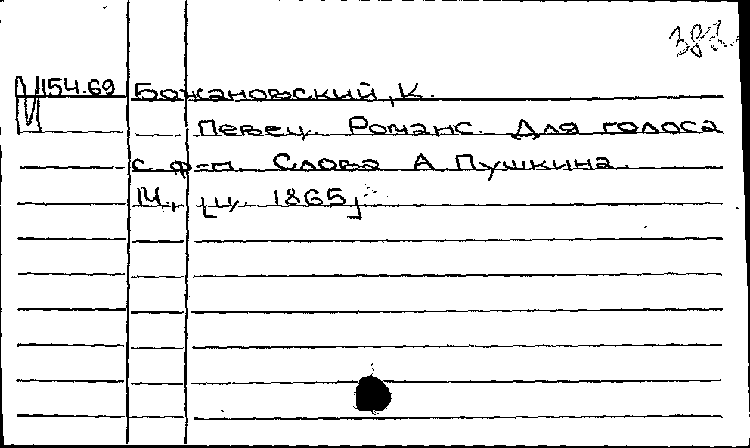 382
154.69 Божановский, К.
Певец. Романс. Для голоса
с ф-п. Слова А. Пушкина.
М., [ц. 1865]